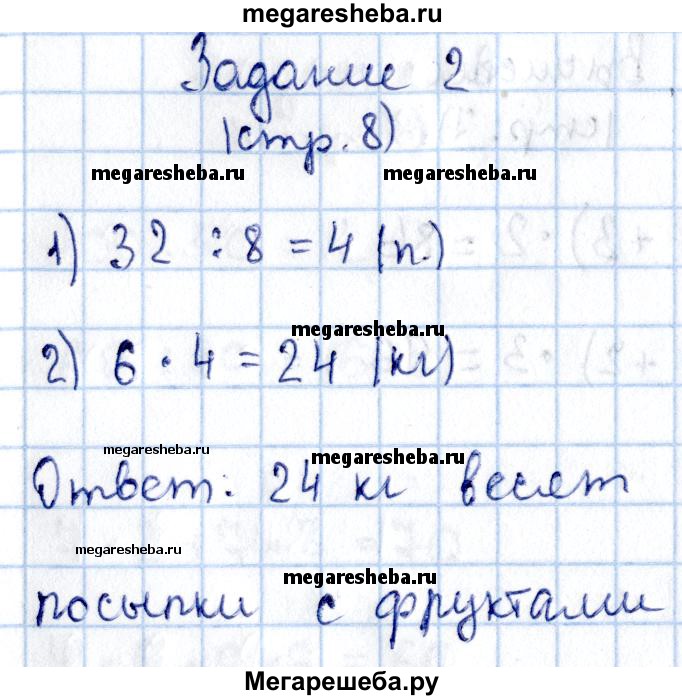 megaresheba.ru
Задание 2
(стр. 8)
megaresheba.ru megaresheba.ru
1) 32 : 8 = 4 (п.)
megaresheba.ru
2) 6 · 4 = 24 (кг)
megaresheba.ru megaresheba.ru
Ответ: 24 кг весят
megaresheba.ru
megaresheba.ru
посылки с фруктами
Мегарешеба.ру